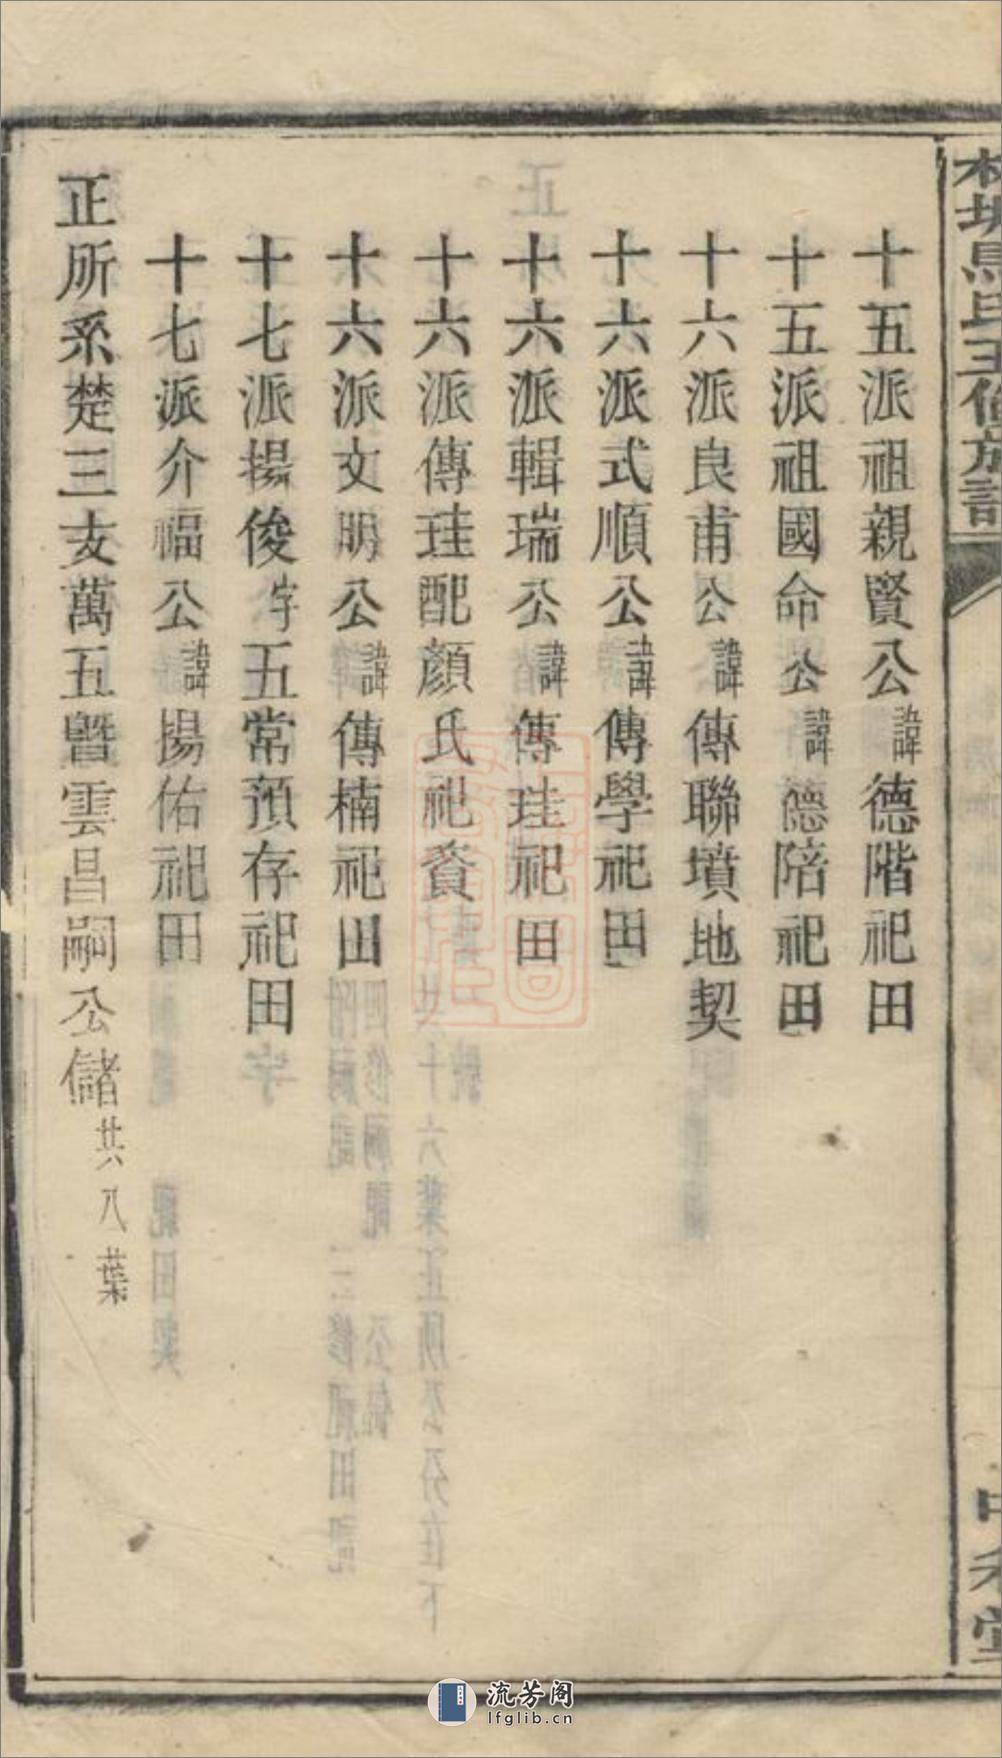 十五派祖親賢公諱德階祀田
十五派祖國命公諱德陪祀田
十六派良甫公諱傳聯墳地契
十六派式順公諱傳學祀田
十六派輯瑞公諱傳珪祀田
十六派傳珪配顏氏祀資
十六派文明公諱傳楠祀田
十七派揚俊字五常預存祀田
十七派介福公諱揚佑祀田
正所系楚三支萬五暨雲昌嗣公儲共八葉
流芳阁
lfglib.cn